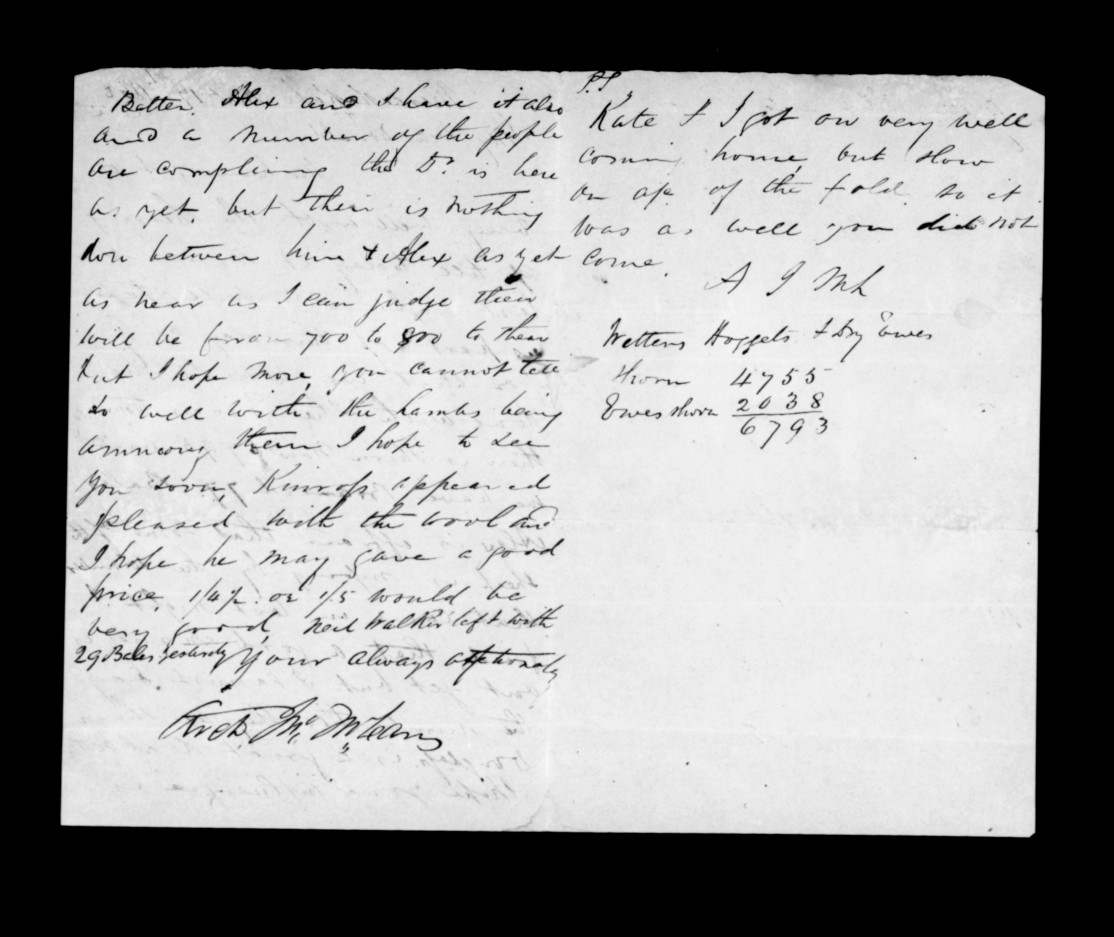 Better. Alex and I have it also
and a number of the people
are complining the Dr. is here
as yet. but their is nothing
don between him & Alex as yet
as near as I can judge their
will be from 700 to 800 to thear
but I hope more, you cannot tell
so well with the Lambs being
amnong them I hope to see
you soving Kinross appeared
pleased with the wool and
I hope he may gave a good
price, 1/4½ or 1/5 would be
very good, Neil Walker left with
29 Bales yesterdy Your always affctionatly
Archd. Jno. McLean
P.S.
Kate & I got on very well
coming home, but slow
on a/c of the fold. so it
was as well you did not
come.
A J McL
Wethers Hoggets & Dry Ewes
Shorn 4755
Ewes shorn 2038
6793